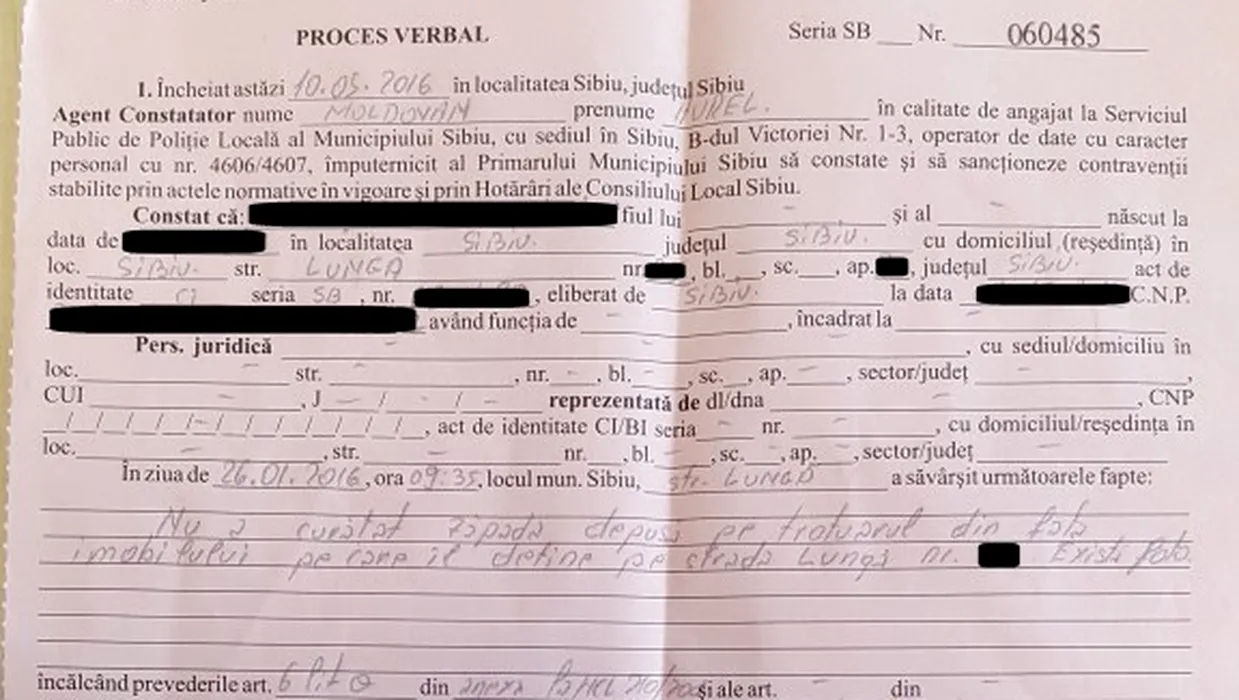 PROCES VERBAL Seria SB ___ Nr. 060485
I. Încheiat astăzi 10.05.2016 în localitatea Sibiu, județul Sibiu
Agent Constatator nume MOLDOVAN prenume AUREL. în calitate de angajat la Serviciul
Public de Poliție Locală al Municipiului Sibiu, cu sediul în Sibiu, B-dul Victoriei Nr. 1-3, operator de date cu caracter
personal cu nr. 4606/4607, împuternicit al Primarului Municipiului Sibiu să constate și să sancționeze contravenții
stabilite prin actele normative în vigoare și prin Hotărâri ale Consiliului Local Sibiu.
Constat că: fiul lui - și al - născut la
data de în localitatea SIBIU. județul SIBIU. cu domiciliul (reședință) în
loc. SIBIU. str. LUNGA nr. , bl. ___, sc. ___, ap. , județul SIBIU. act de
identitate CI seria SB, nr. , eliberat de SIBIU. la data C.N.P.
având funcția de - , încadrat la -
Pers. juridică - , cu sediul/domiciliu în
loc. - str. - , nr. - , bl. - , sc. ___, ap. - , sector/județ - ,
CUI - , J - / - / - reprezentată de dl/dna - , CNP
_/_/_/_/_/-/_/_/_/_/_/_/_, act de identitate CI/BI seria - nr. - , cu domiciliul/reședința în
loc. - , str. - nr. - , bl. - , sc. - , ap. - , sector/județ -
În ziua de 26.01.2016, ora 09:35, locul mun. Sibiu, str. LUNGA a săvârșit următoarele fapte:
Nu a curățat zăpada depusă pe trotuarul din fața
imobilului pe care îl deține pe strada Lungă nr. Există foto.
încălcând prevederile art. 6 din anexa și ale art. - din